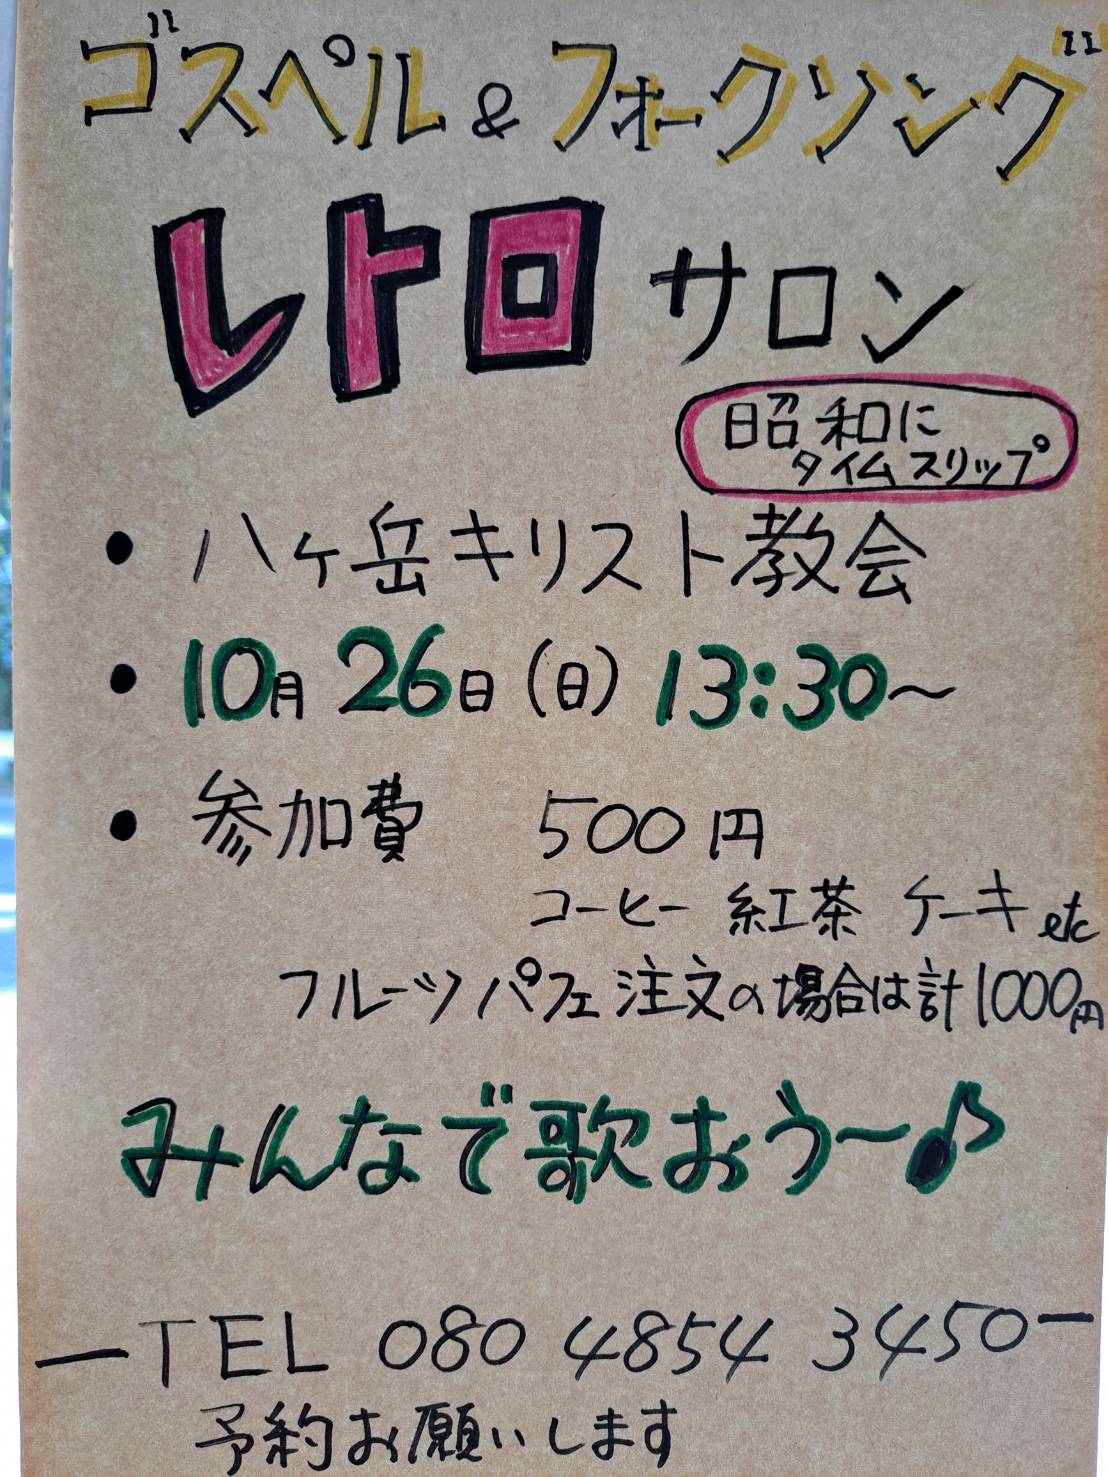 ゴスペル & フォークソング
レトロ サロン
昭和に
タイムスリップ
• 八ヶ岳キリスト教会
• 10月 26日 (日) 13:30〜
• 参加費 500円
コーヒー 紅茶 ケーキ etc
フルーツパフェ注文の場合は計1000円
みんなで歌おう〜♪
—TEL 080 4854 3450—
予約お願いします